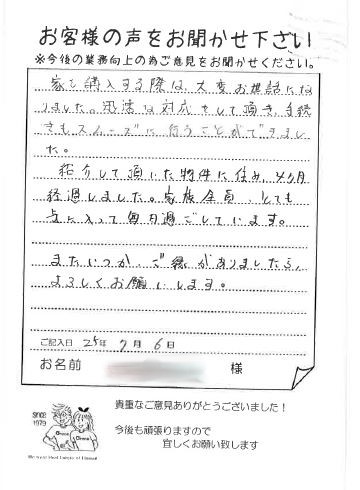 お客様の声をお聞かせ下さい
※今後の業務向上の為ご意見をお聞かせください。
家を購入する際は、大変お世話にな
りました。迅速な対応をして頂き、手続
きもスムーズに行うことができまし
た。
紹介して頂いた物件に住み、4ヶ月
経過しました。家族全員、とても
気に入って毎日過ごしています。
またいつか、ご縁がありましたら、
よろしくお願いします。
ご記入日 25年 7月 6日
お名前 様
SINCE
1979
貴重なご意見ありがとうございました！
今後も頑張りますので
宜しくお願い致します